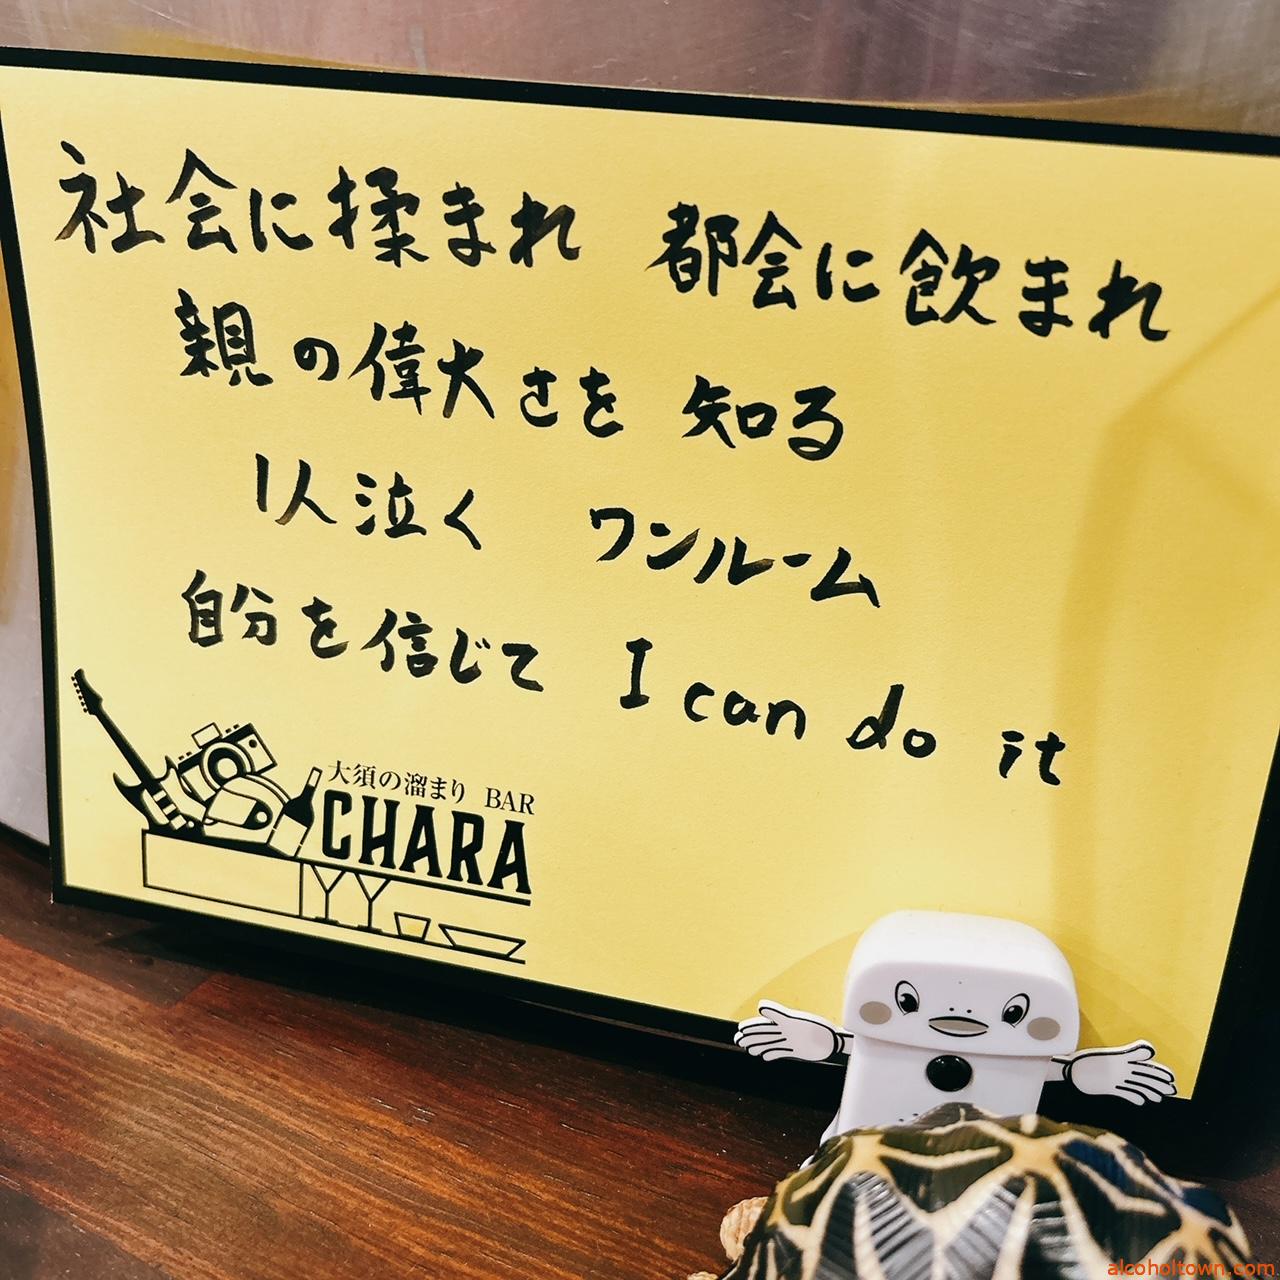 社会に揉まれ 都会に飲まれ
親の偉大さを 知る
1人泣く ワンルーム
自分を信じて I can do it
大須の溜まり BAR
CHARA
alcoholtown.com